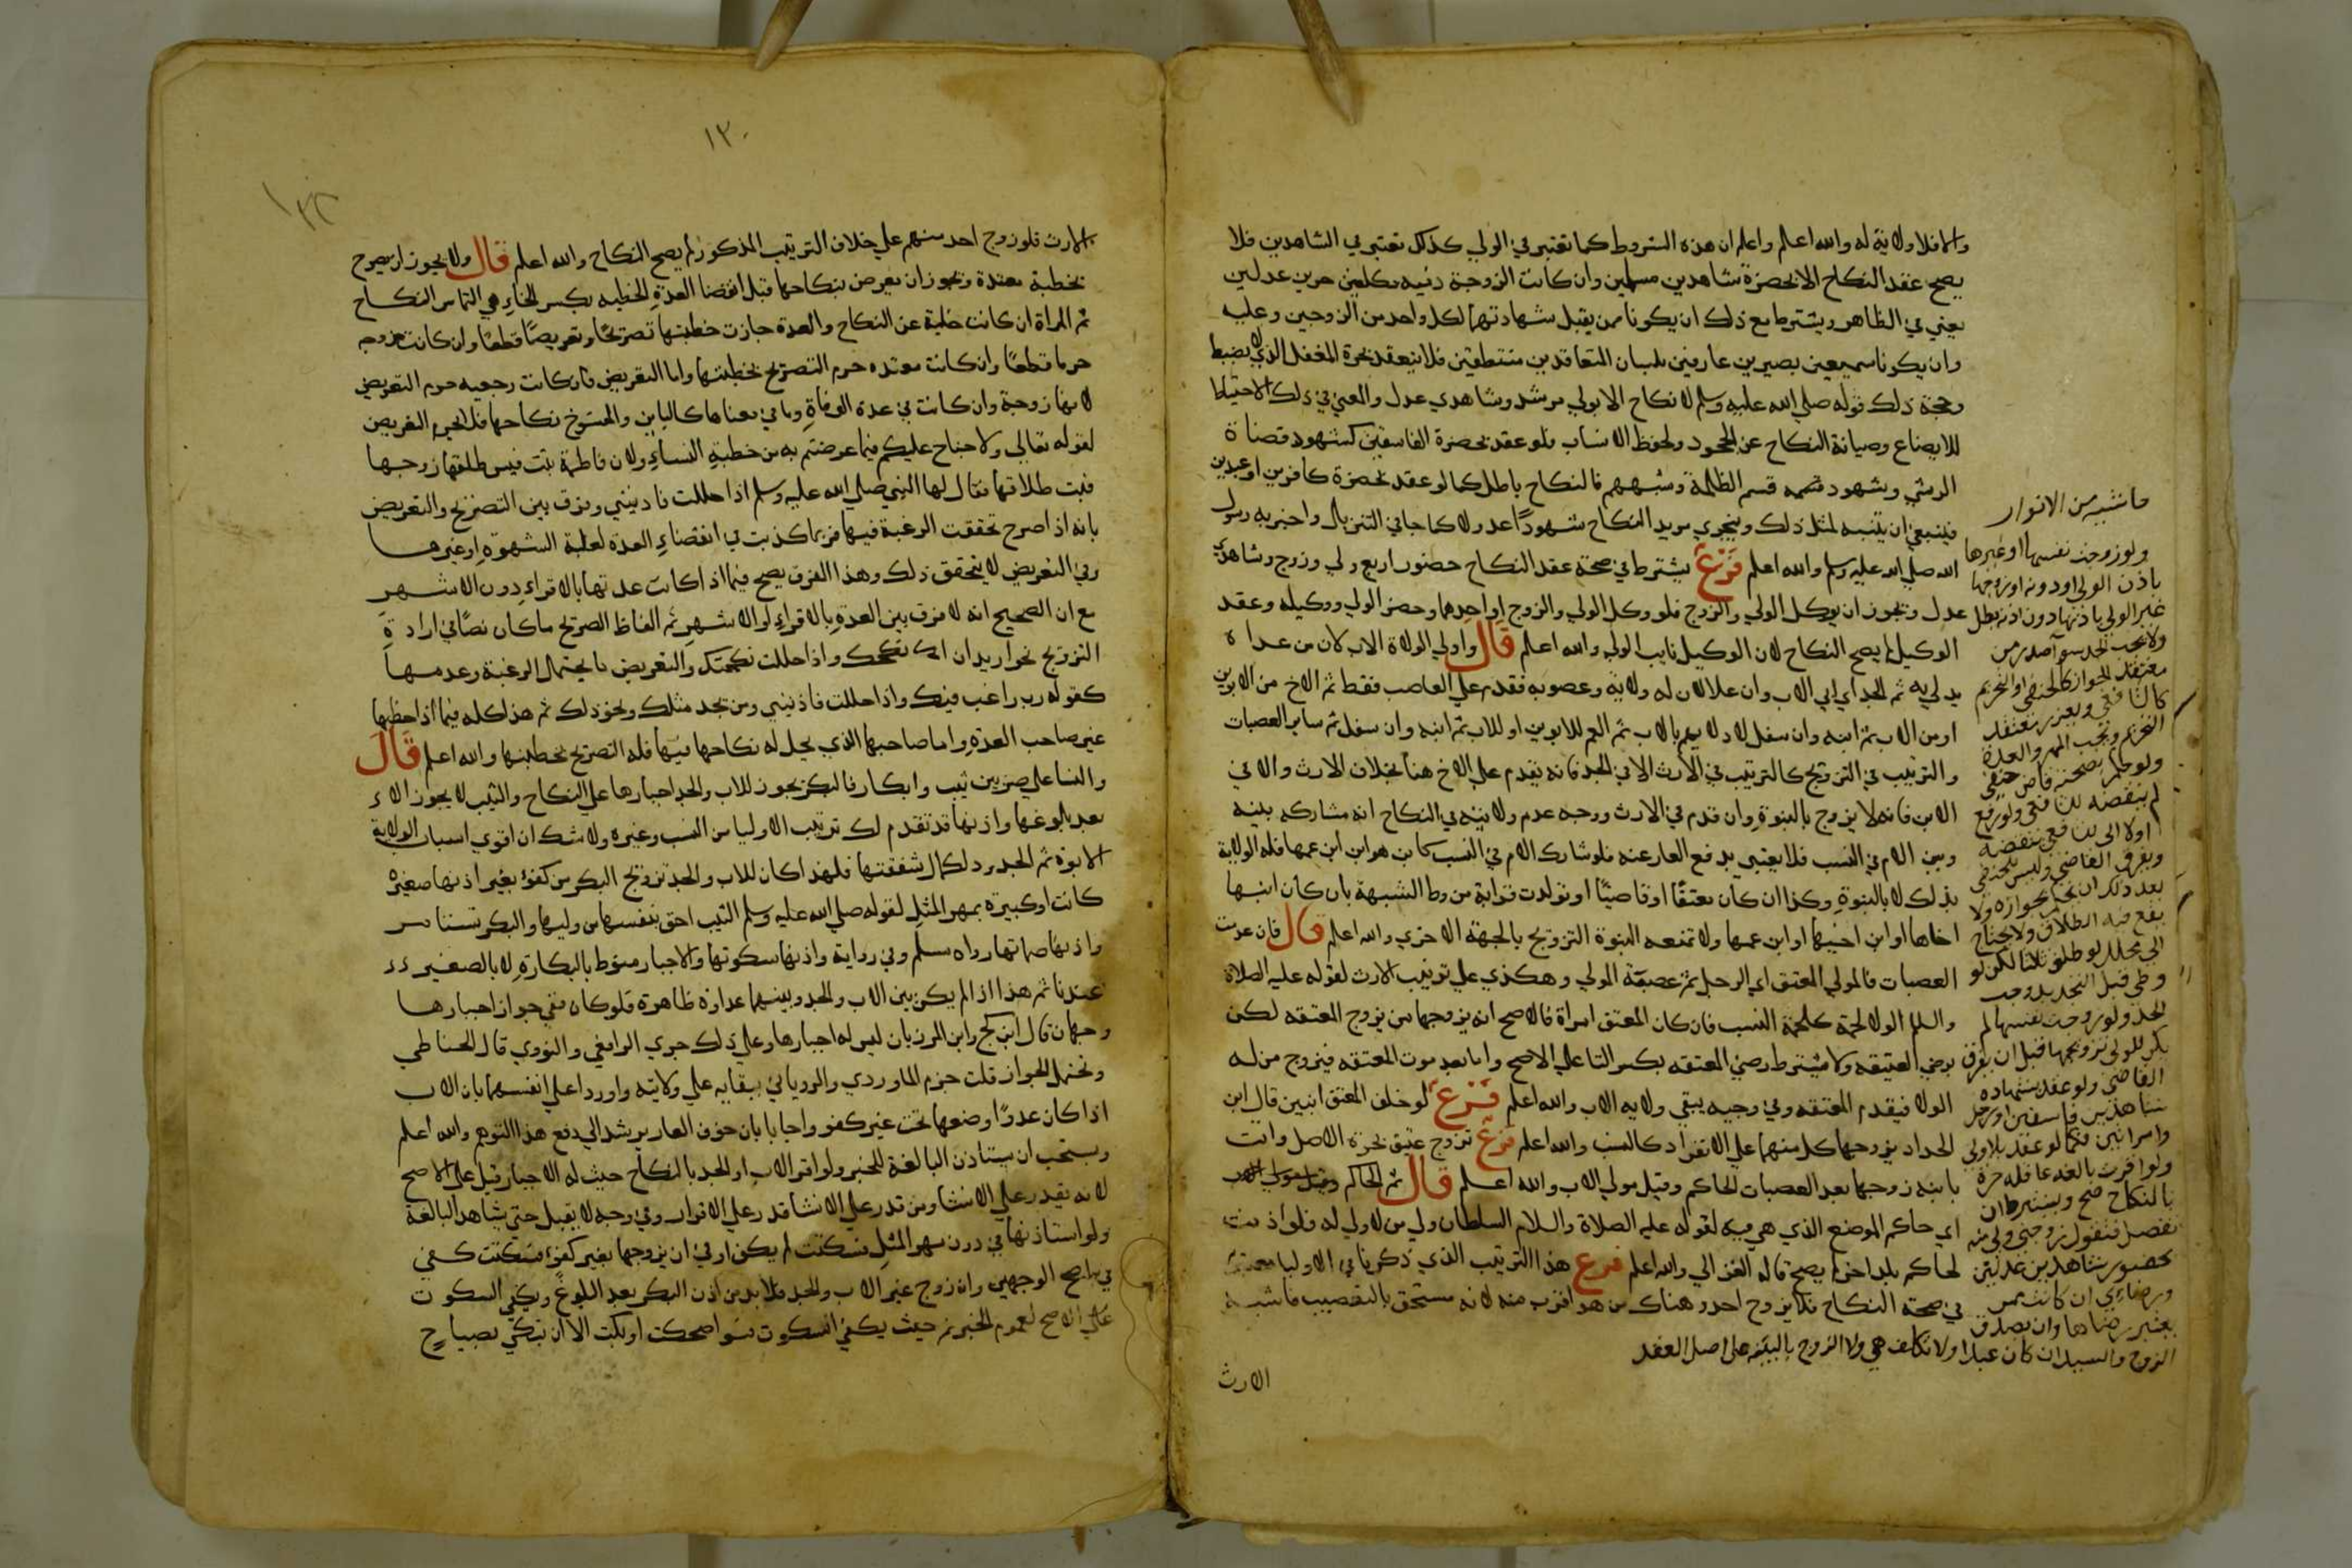 والا فلا ولاية له والله اعلم واعلم ان هذه الشروط كما تعتبر في الولي كذلك تعتبر في الشاهدين فلا
يصح عقد النكاح الا بحضرة شاهدين مسلمين وان كانت الزوجة ذميه مكلفين حرين عدلين
يعني في الظاهر ويشترط مع ذلك ان يكونا ممن يقبل شهادتهما لكل واحد من الزوجين وعليه
وان يكونا سميعين بصيرين عارفين بلسان المتعاقدين متيقظين فلا ينعقد بحضرة المغفل الذي لا يضبط
وحجة ذلك قوله صلي الله عليه وسلم لا نكاح الا بولي مرشد وشاهدي عدل والمعني في ذلك الاحتياط
للابضاع وصيانة النكاح عن الجحود ولحفظ الانساب فلو عقد بحضرة الفاسقين كشهود قضاة
الرشي وشهود قسم الظلمة وشبههم فالنكاح باطل كما لو عقد بحضرة كافرين او عبدين
فينبغي ان يتنبه لمثل ذلك ويتحري مريد النكاح شهودًا عدولا كما جا في التنزيل واخبر به رسول
الله صلي الله عليه وسلم والله اعلم فَرْعٌ يشترط في صحة عقد النكاح حضور اربع ولي وزوج وشاهدي
عدل ويجوز ان يوكل الولي والزوج فلو وكل الولي والزوج او احدهما وحضر الولي ووكيله وعقد
الوكيل لم يصح النكاح لان الوكيل نايب الولي والله اعلم قَالَ واولي الولاة الاب لان من عداه
يدلي به ثم الجد اي ابي الاب وان علا لان له ولاية وعصوبه فقدم علي العاصب فقط ثم الاخ من الابوين
او من الاب ثم ابنه وان سفل لادلايهم بالاب ثم العم للابوين او للاب ثم ابنه وان سفل ثم ساير العصبات
والترتيب في التزويج كالترتيب في الارث الا في الجد فانه يقدم علي الاخ هنا بخلاف الارث والا في
الابن فانه لا يزوج بالبنوة وان قدم في الارث ووجه عدم ولايته في النكاح انه مشاركه بينه
وبين الام في النسب فلا يعتني بدفع العار عنه فلو شارك الام في النسب كابن هو ابن ابن عمها فله الولاية
بذلك لا بالبنوة وكذا ان كان معتقًا او قاضيًا او تولدت قرابة من وطا الشبهة بان كان ابنها
اخاها او ابن اخيها او ابن عمها ولا تمنعه البنوة التزويج بالجهة الاخري والله اعلم قَالَ فان عدمت
العصبات فالمولي المعتق اي الرجل ثم عصبته المولي وهكذي علي ترتيب الارث لقوله عليه الصلاة
والسلام الولا لحمة كلحمة النسب فان كان المعتق امراة فالاصح انه يزوجها من يزوج المعتقه لكن
برضي العتيقه ولا يشترط رضي المعتقه بكسر التا علي الاصح واما بعد موت المعتقه فيزوج من له
الولا فيقدم المعتقه وفي وجيه يبقي ولايه الاب والله اعلم فَرْعٌ لو خلف المعتق ابنين قال ابن
الحداد يزوجها كل منهما علي الانفراد كالنسب والله اعلم فَرْعٌ تزوج عتيق بحرة الاصل واتت
بابنه زوجها بعد العصبات الحاكم وقيل مولي الاب والله اعلم قَالَ ثم الحاكم
اي حاكم الموضع الذي هي فيه لقوله عليه الصلاة والسلام السلطان ولي من لا ولي له فلو اذنت
لحاكم بلد اخر لم يصح قاله الغزالي والله اعلم فرع هذا الترتيب الذي ذكرنا في الاوليا معتبر
في صحة النكاح فلا يزوج احد وهناك من هو اقرب منه لانه مستحق بالتعصيب فاشبه
الارث
حاشيه من الانوار
ولو زوجت نفسها او غيرها
باذن الولي او دونه او زوجها
غير الولي باذنها دون اذنه بطل
ولا يجب الحد سوا صدر من
معتقد الجواز كالحنفي او التحريم
كالشافعي ويعزر معتقد
التحريم ويجب المهر والعدة
ولو حكم بصحته قاض حنفي
لم ينقضه الشافعي ولو رفع
اولا الى شافعي نقضه
وفرق القاضي وليس للحنفي
بعد ذلك ان يحكم بجوازه ولا
يقع فيه الطلاق ولا يحتاج
الى محلل لو طلق ثلثا لكن لو
وطي قبل التجديد وجب
الحد ولو زوجت نفسها لم
يكن للولي تزويجها قبل ان يفرق
القاضي ولو عقد بشهادة
شاهدين فاسقين او رجل
وامراتين فكما لو عقد بلا ولي
ولو اقرت بالغه عاقله حرة
بالنكاح صح ويشترط ان
تفصل فتقول زوجني ولي منه
بحضور شاهدين عدلين
ورضاءي ان كانت ممن
يعتبر رضاها وان يصدق
الزوج والسيد ان كان عبدا ولا تكلف هي ولا الزوج بالبينة على اصل العقد
١٣٠
١٣٢
الارث فلو زوج احد منهم علي خلاف الترتيب المذكور لم يصح النكاح والله اعلم قَالَ ولا يجوز ان يصرح
بخطبة معتدة ويجوز ان يعرض بنكاحها قبل انقضا العدة الخطبه بكسر الخاءِ هي التماس النكاح
ثم المراة ان كانت خلية عن النكاح والعدة جازت خطبتها تصريحًا وتعريضًا قطعًا وان كانت مزوجه
حرما قطعًا وان كانت معتده حرم التصريح بخطبتها واما التعريض فان كانت رجعيه حرم التعريض
لانها زوجة وان كانت في عدة الوفاة وما في معناها كالباين والمفسوخ نكاحها فلا يحرم التعريض
لقوله تعالي ولا جناح عليكم فيما عرضتم به من خطبةِ النساءِ ولان فاطمة بنت قيس طلقها زوجها
فبت طلاقها فقال لها النبي صلي الله عليه وسلم اذا حللت فاذنيني وفرق بين التصريح والتعريض
بانه اذا صرح تحققت الرغبة فيها فربما كذبت في انقضاءِ العدة لغلبة الشهوةِ او غيرها
وفي التعريض لا يتحقق ذلك وهذا الفرق يصح فيما اذا كانت عدتها بالاقراءِ دون الاشهر
مع ان الصحيح انه لا فرق بين العدةِ بالاقراءِ او الاشهرِ ثم الفاظ الصريح ماكان نصًا في ارادة
التزويج نحو اريد ان انكحك واذا حللت نكحتك والتعريض ما يحتمل الرغبة وعدمها
كقوله رب راغب فيك واذا حللت فاذنيني ومن يجد مثلك ونحو ذلك ثم هذا كله فيما اذا خطبها
غير صاحب العدةِ واما صاحبها الذي يحل له نكاحها فيها فله التصريح بخطبتها والله اعلم قَالَ
والنسا علي ضربين ثيب وابكار فالبكر يجوز للاب والجد اجبارها علي النكاح والثيب لا يجوز الا
بعد بلوغها واذنها قد تقدم لك ترتيب الاوليا من النسب وغيره ولا شك ان اقوي اسباب الولاية
الابوة ثم الجدود لكمال شفقتها فلهذا كان للاب والجد تزويج البكر من كفؤٍ بغير اذنها صغيرة
كانت او كبيرة بمهر المثل لقوله صلي الله عليه وسلم الثيب احق بنفسها من وليها والبكر تستامر
واذنها صماتها رواه مسلم وفي رواية واذنها سكوتها والاجبار منوط بالبكارةِ لا بالصغير
عندنا ثم هذا اذا لم يكن بين الاب والجد وبينهما عداوة ظاهرة فلو كان ففي جواز اجبارها
وجهان قال ابن كج وابن المرزبان ليس له اجبارها وعلي ذلك جري الرافعي والنووي قال الحناطي
ويحتمل الجواز قلت جزم الماوردي والروياني ببقايه علي ولايته واوردا علي انفسهما بان الاب
اذا كان عدوًا وضعها تحت غير كفو واجابا بان خوف العار يرشد الي دفع هذا التوهم والله اعلم
ويستحب ان يستاذن البالغة للخبر ولو اقر الاب او الجد بالنكاح حيث له الاجبار قبل علي الاصح
لانه يقدر علي الانشا ومن قدر علي الانشا قدر علي الاقرار وفي وجه لا يقبل حتي يشاهد البالغة
ولو استاذنها في دون مهر المثلِ فسكتت لم يكن او في ان يزوجها بغير كفوٍ فسكتت كفي
في اصح الوجهين وان زوج غير الاب والجد فلا بد من اذن البكر بعد البلوغ ويكفي السكوت
علي الاصح لعموم الخبر ثم حيث يكفي السكوت سوا ضحكت او بكت الا ان تبكي بصياح